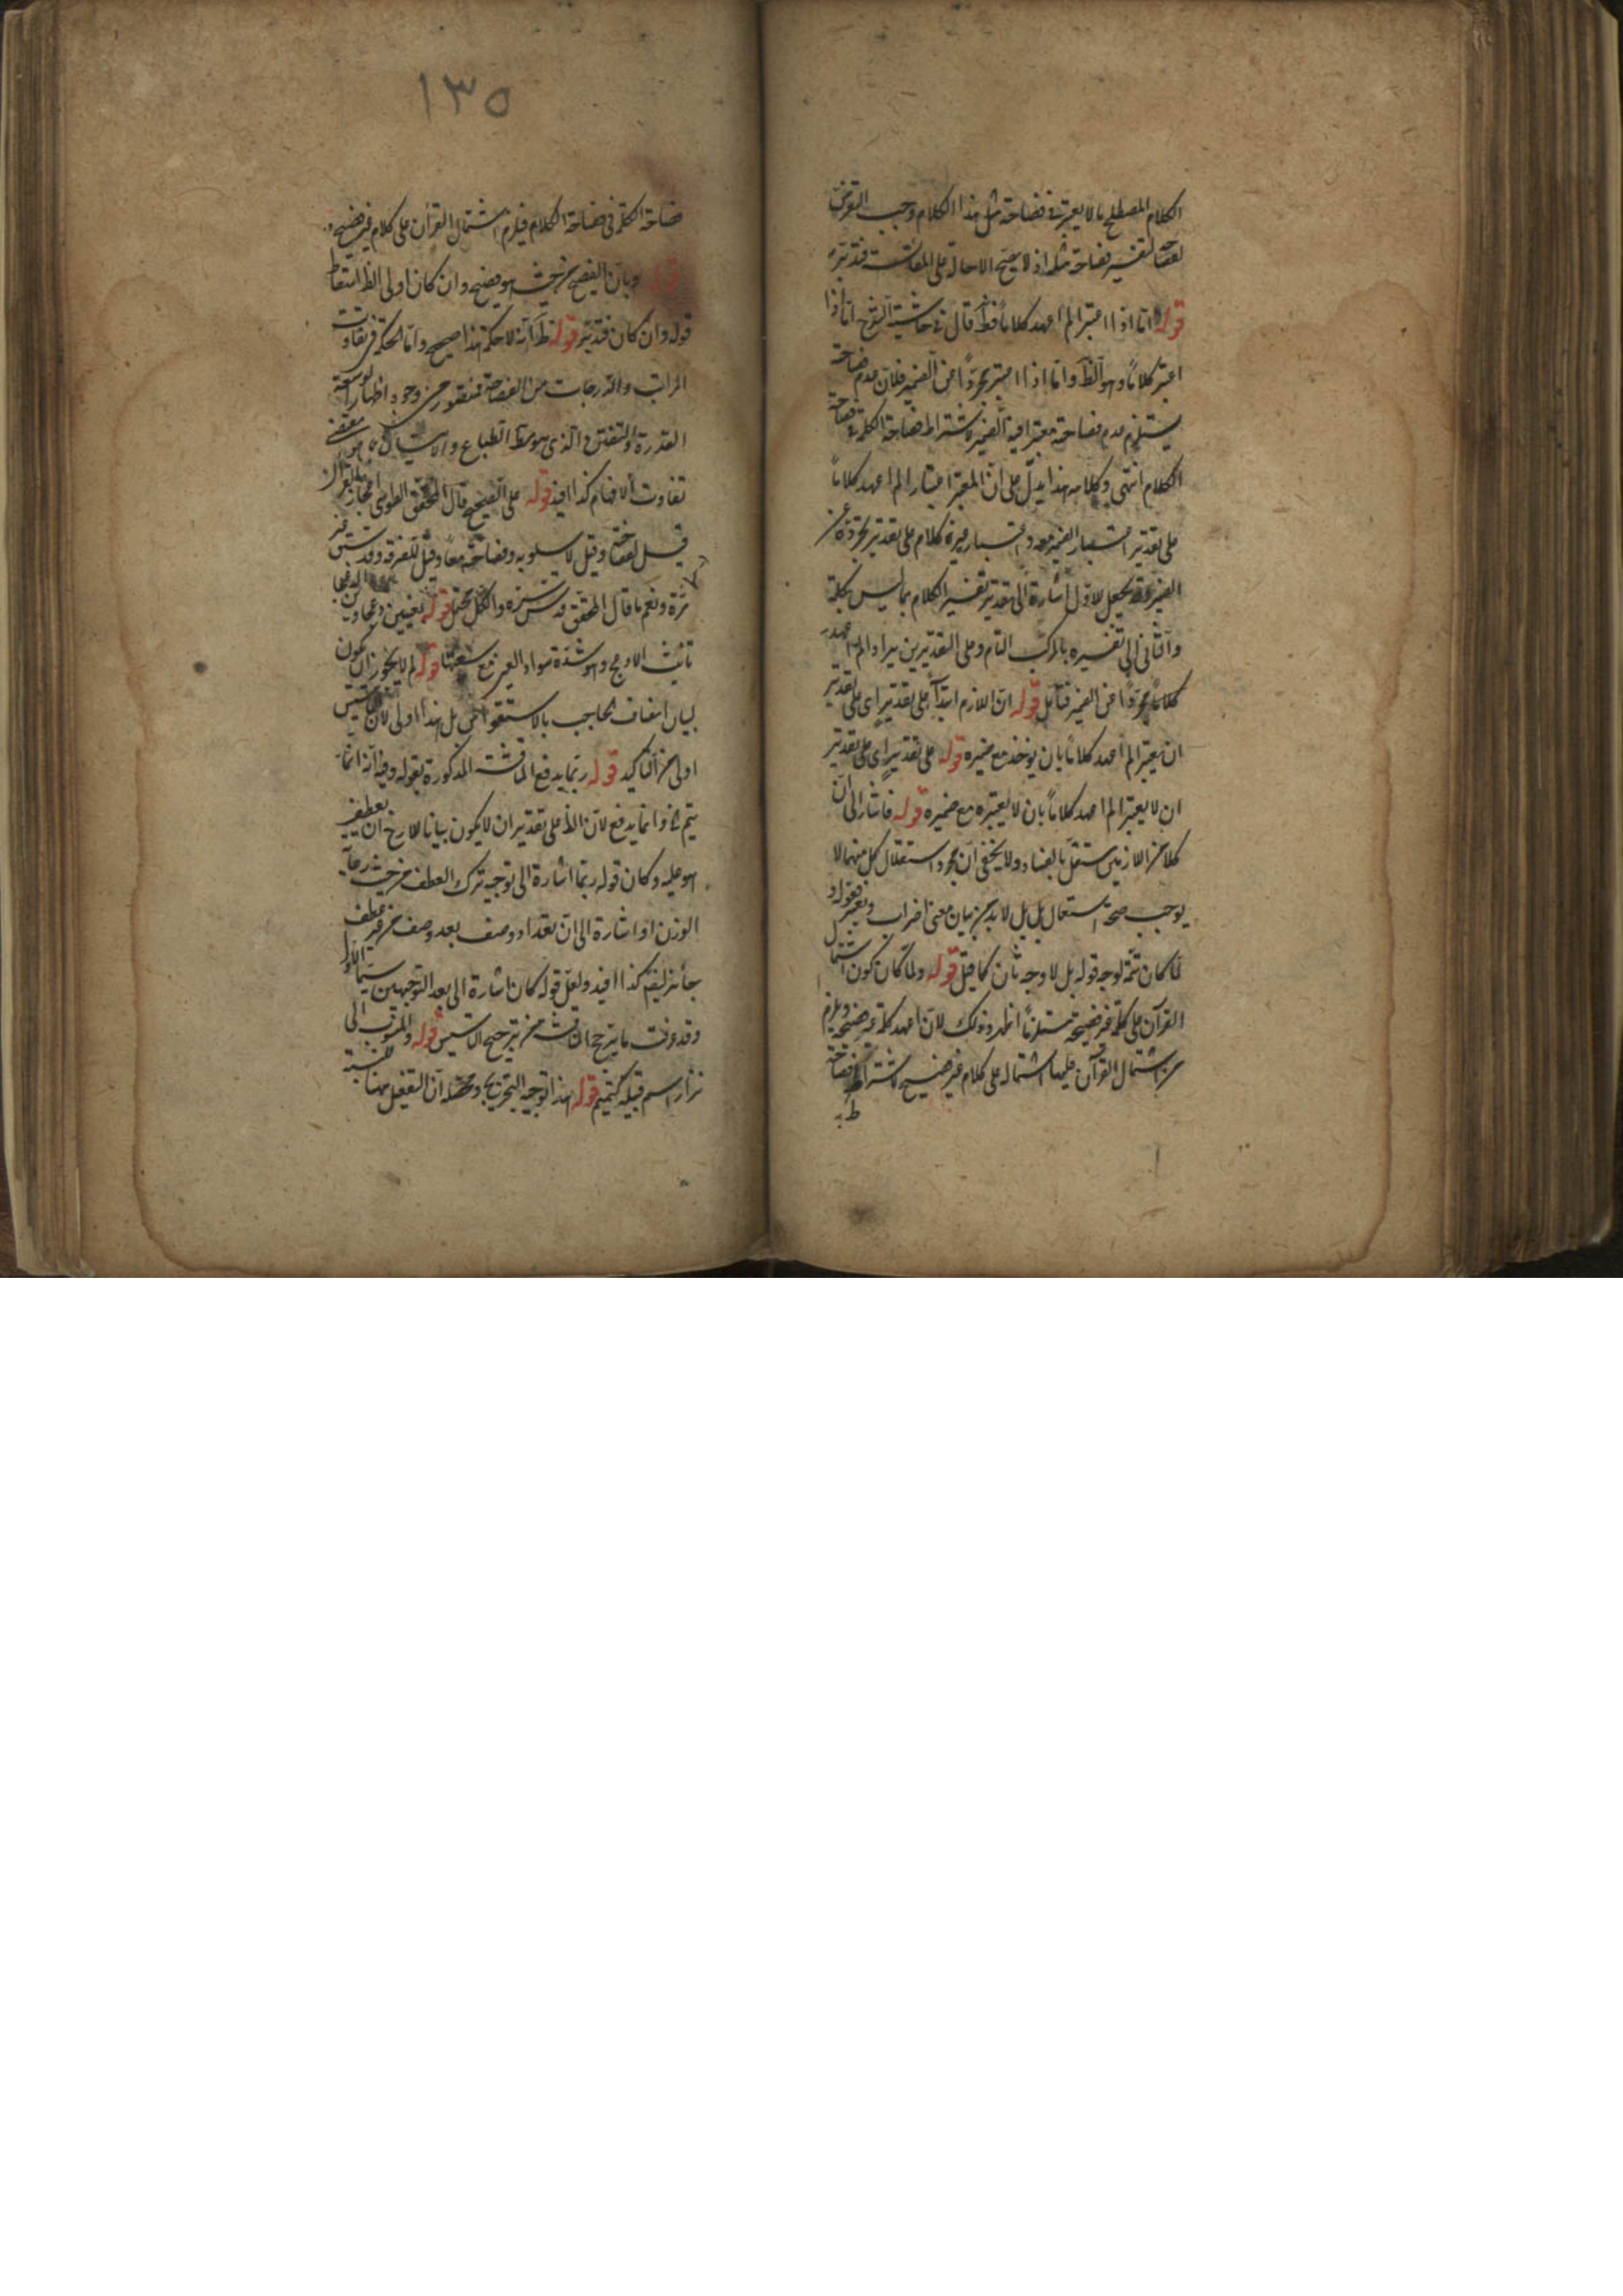 الكلام المصطلح ما لا يعتبر في فصاحة مثل هذا الكلام وجب التعرض
لتفسير فصاحة مثله اذ لا يصح الاحالة على المقايسة فتدبر
قوله اما اذا اعتبر الم اعهد كلاما فظ قال في حاشية اما اذا
اعتبر كلاما وهو الظ واما اذا اعتبر مجردا عن الضمير فلان عدم فصاحة
يستلزم عدم فصاحة معتبرا فيه الضمير لاشتراط فصاحة الكلمة في فصاحة
الكلام انتهى وكلامه هذا يدل على ان المعتبر اعتبار الم اعهد كلاما
على تقدير اعتبار الضمير معه واعتبار غيره كلام على تقدير تجرده عن
الضمير وقد يجعل الاول اشارة الى تقدير تفسير الكلام بما ليس بكلمة
والثاني الى تفسيره بالمركب التام وعلى التقديرين يراد الم اعهد
كلاما مجردا عن الضمير فتأمل قوله ان اللازم ابتدا على تقدير اى على تقدير
ان يعتبر الم اعهد كلاما بان يوخذ مع ضميره قوله على تقدير اى على تقدير
ان لا يعتبر الم اعهد كلاما بان لا يعتبره مع ضميره قوله فاشار الى ان
كلا من اللازمين مستقل بالفساد ولا يخفى ان مجرد استقلال كل منهما لا
يوجب صحة استعمال بل بل لا بد من بيان معنى اضراب
لما كان ثمة لوجه قوله بل لا وجه ثان كما قيل قوله ولما كان كون اشتمال
القرآن على كلمة غير فصيحة مستلزما اظهر وذلك لان اعهد كلمة غير فصيحة ويلزم
من اشتمال القرآن عليها اشتماله على كلام غير فصيح لاشتراط فصاحة
١٣٥
فصاحة الكلمة في فصاحة الكلام فيلزم اشتمال القرآن على كلام غير فصيح
قوله وبان الفصيح من حيث هو فصيح وان كان اولى الظ اسقاط
قوله وان كان فتدبر قوله ظ انه لا حكمة هذا صحيح واما الحكمة في تفاوت
المراتب والدرجات من الفصاحة فمتصور من وجوه اظهار لوسعة
القدرة والتفنن الذي هو
تفاوت الافهام كذا افيد قوله على الصحيح قال المحقق الطوسى اعجاز القرآن
قيل لفصاحته وقيل لاسلوبه وفصاحته معا وقيل للصرفة وقد
مرة ونعم ما قال المحقق قدس سره والكل محتمل قوله
تأنيث الادعج وهو شدة سواد العين مع سعتها قوله لم لا يجوز ان يكون
لبيان اتصاف الحاجب بالاستقواس بل هذا اولى لان التأسيس
اولى من التأكيد قوله ربما يدفع المناقشة المذكورة بقوله وفيه انه انما
يتم وانما يدفع لان الظ على تقدير ان لا يكون بيانا للازج ان يعطف
هو عليه وكان قوله ربما اشارة الى توجيه ترك العطف من حيث رعاية
الوزن او اشارة الى ان تعداد وصف بعد وصف من غير عطف
جائز ايض كذا افيد ولعل قوله كان اشارة الى بعد التوجيهين سيما الاول
وقد عرفت ما يترجح المناقشة من ترجيح التأسيس قوله والمنسوب الى
نزار اسم قبيلة كتميم قوله هذا توجيه التخريج ومحصله ان التفعيل ههنا للنسبة